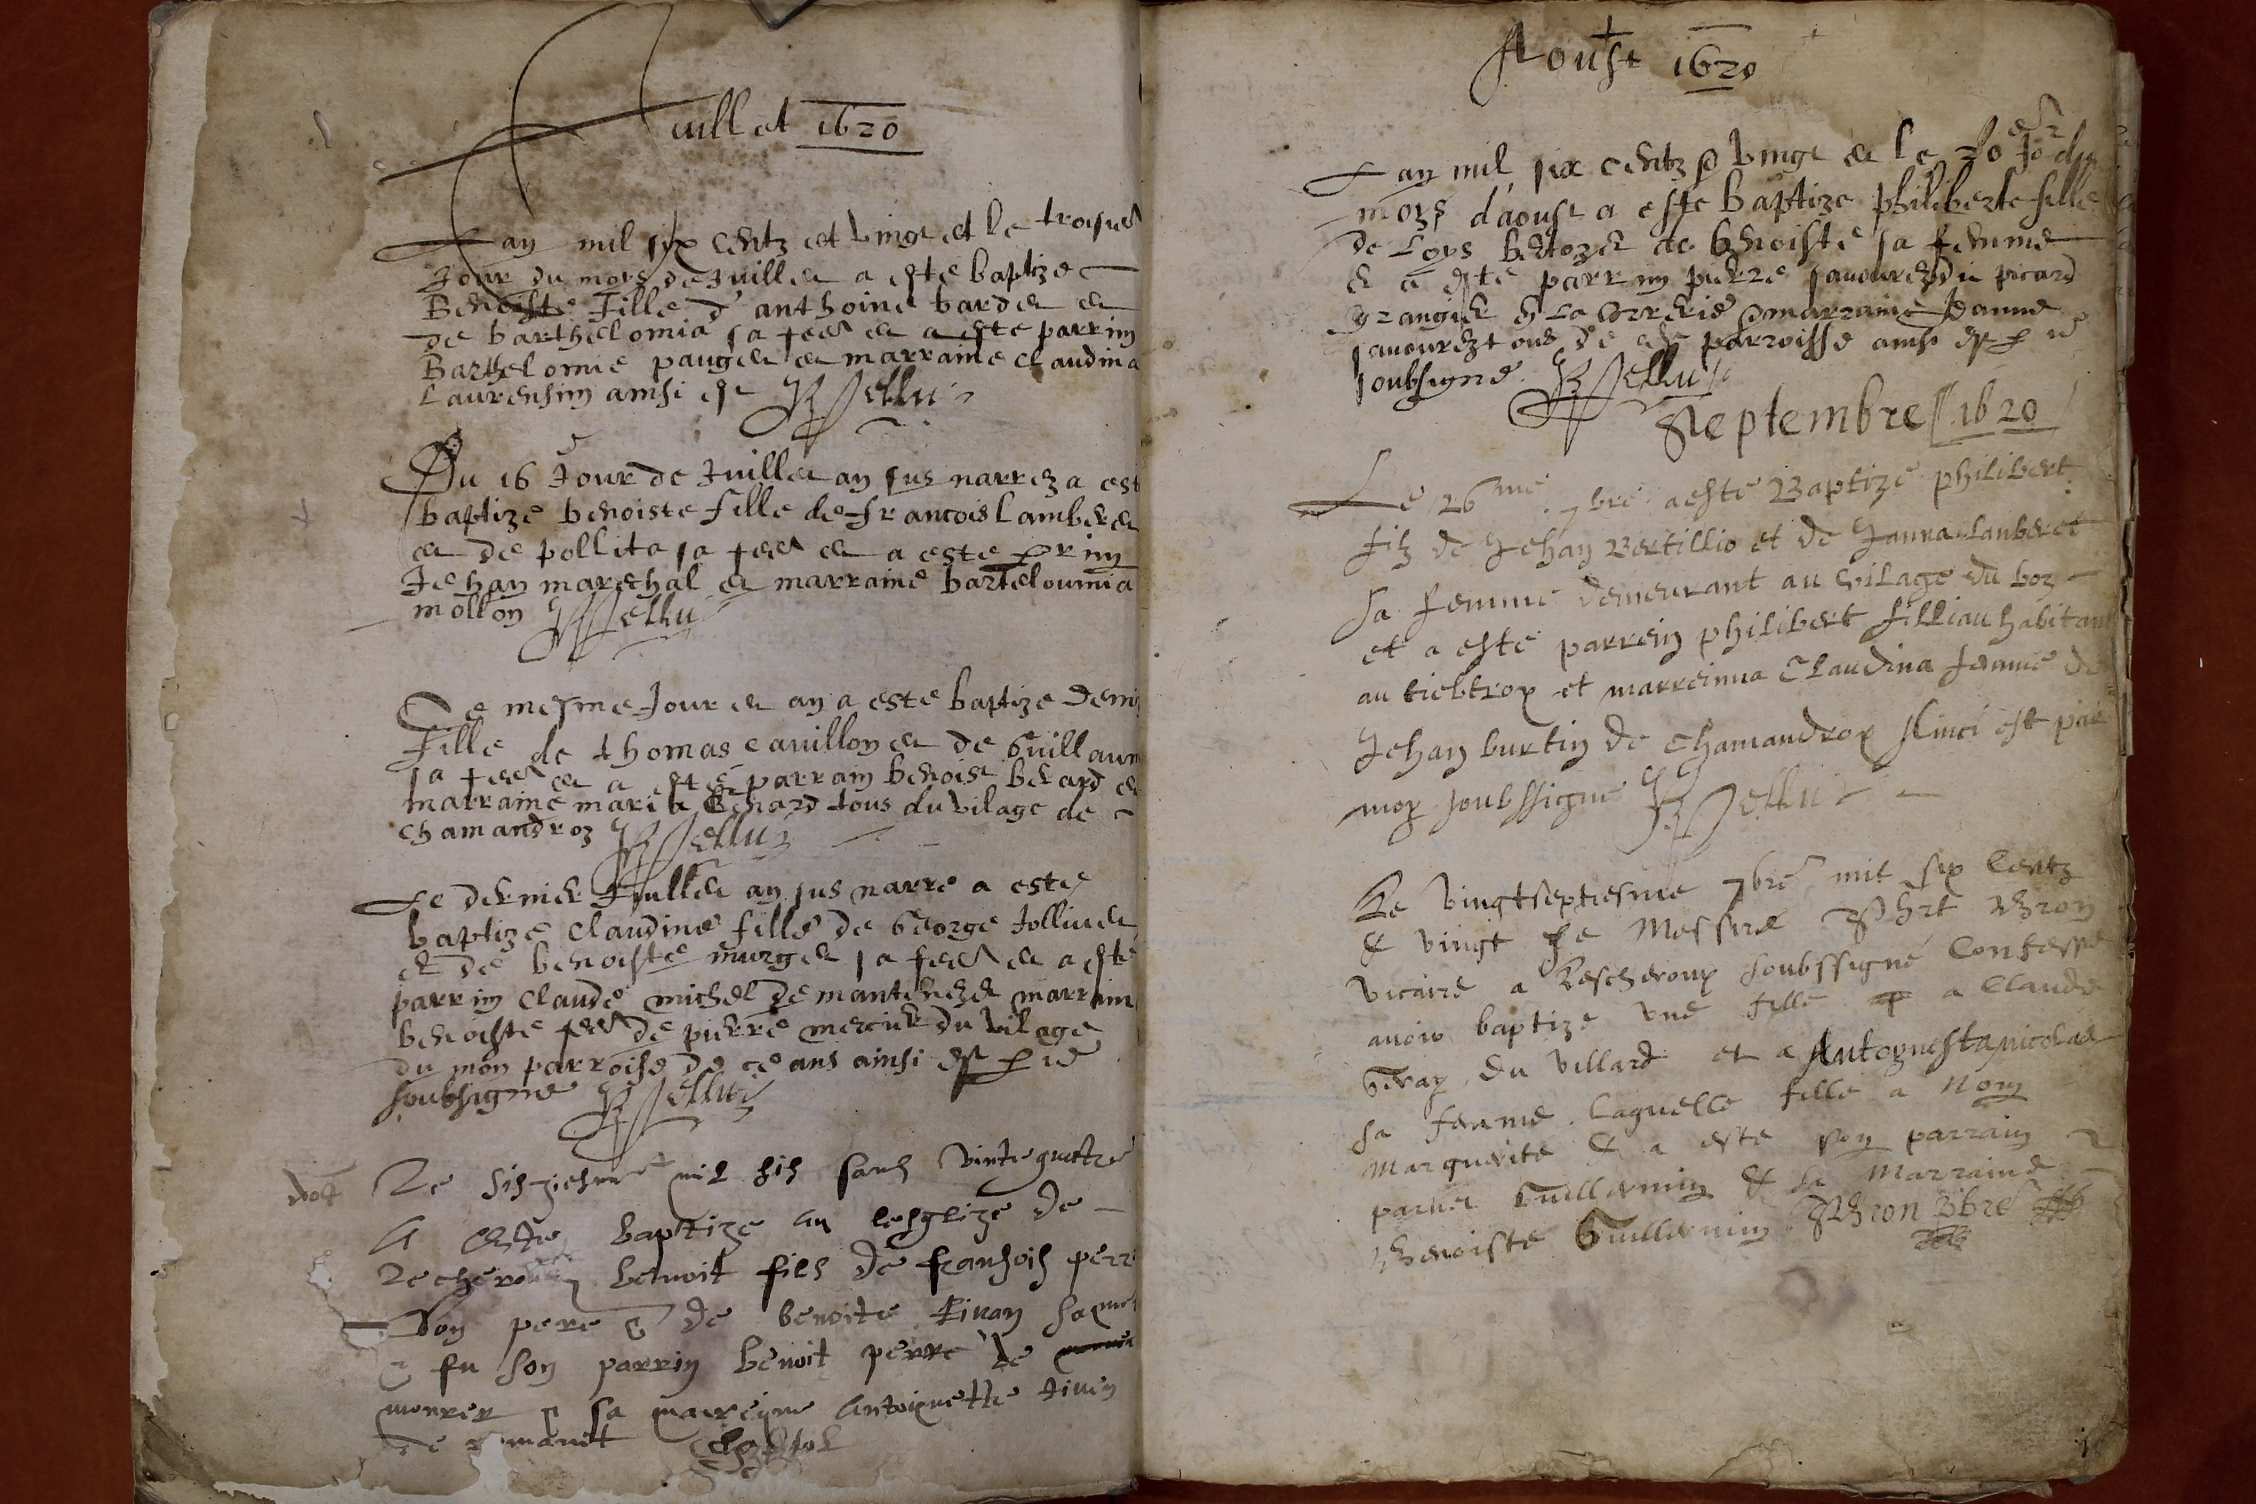 Juillet 1620
Lan mil six centz et vingt et le troisie
Jour du moys de Juillet a este baptize
Benoiste Fille d'anthoine bardet et
de barthelomia sa fee et a este parrin
Barthelomie pauget et marraine claudina
Laurensin ainsi est
Du 16 Jour de Juillet an sus narrez a est
baptize benoiste fille de francois lamberet
et de pollita sa fee et a este prin
Jehan marechal et marraine barteloumia
mollon
Le mesme Jour et an a este baptize Deni
Fille de thomas cavillon et de Guillaum
sa fee et a este parrain benoist berard et
marraine maria benard tous du vilage de
chamandroz
Le dernier Juillet an sus narré a este
baptize claudine fille de George Jollivet
et de benoiste murget sa fee et a este
parrin claude michel de mantenezet marrain
benoiste fee de pierre mercier du vilage
du mon parroise de ceans ainsi est p ie
soubsigne
Le sisziesme mil sis sans vinte quatre
A Este baptize an lesglize de
Recherou benoit fils de fransois perr
Son pere et de benoite Tivan
et fu son parrin benoit perre de
monrer et sa marreyne antoynette tiven
de romanet
Aoust 1620
Lan mil six centz et vingt et le Jo du
moys d'aoust a este baptize philiberte fille
de Loys bertozet et de benoiste sa femme
et a este parrin pierre savourez du picard
grangier en la verrerie et marraine Jeanne
savourez tous de parroisse ainsi est p ie
soubsigne
Septembre 1620
Le 26me 7bre a este Baptizé philibert
filz de Jehan Bertillio et de Janna lanberet
sa femme demeurant au vilage du boz
et a este parrein philibert filliau habitant
au tiebtrox et marreinna Claudina femme de
Jehan burtin de Chamandrox Ainci est par
moy soubssigne
Le vingtseptiesme 7bre mil six Centz
& vingt Je Messire
vicaire a Lescheroux soubssigné Confesse
avoir baptize une fille a Claude
Gévay du villard et a Antoynesta nicolas
sa femme laquelle fille a nom
Marguerite & a este son parrain
Guillermin & sa Marraine
Benoiste Guillermin